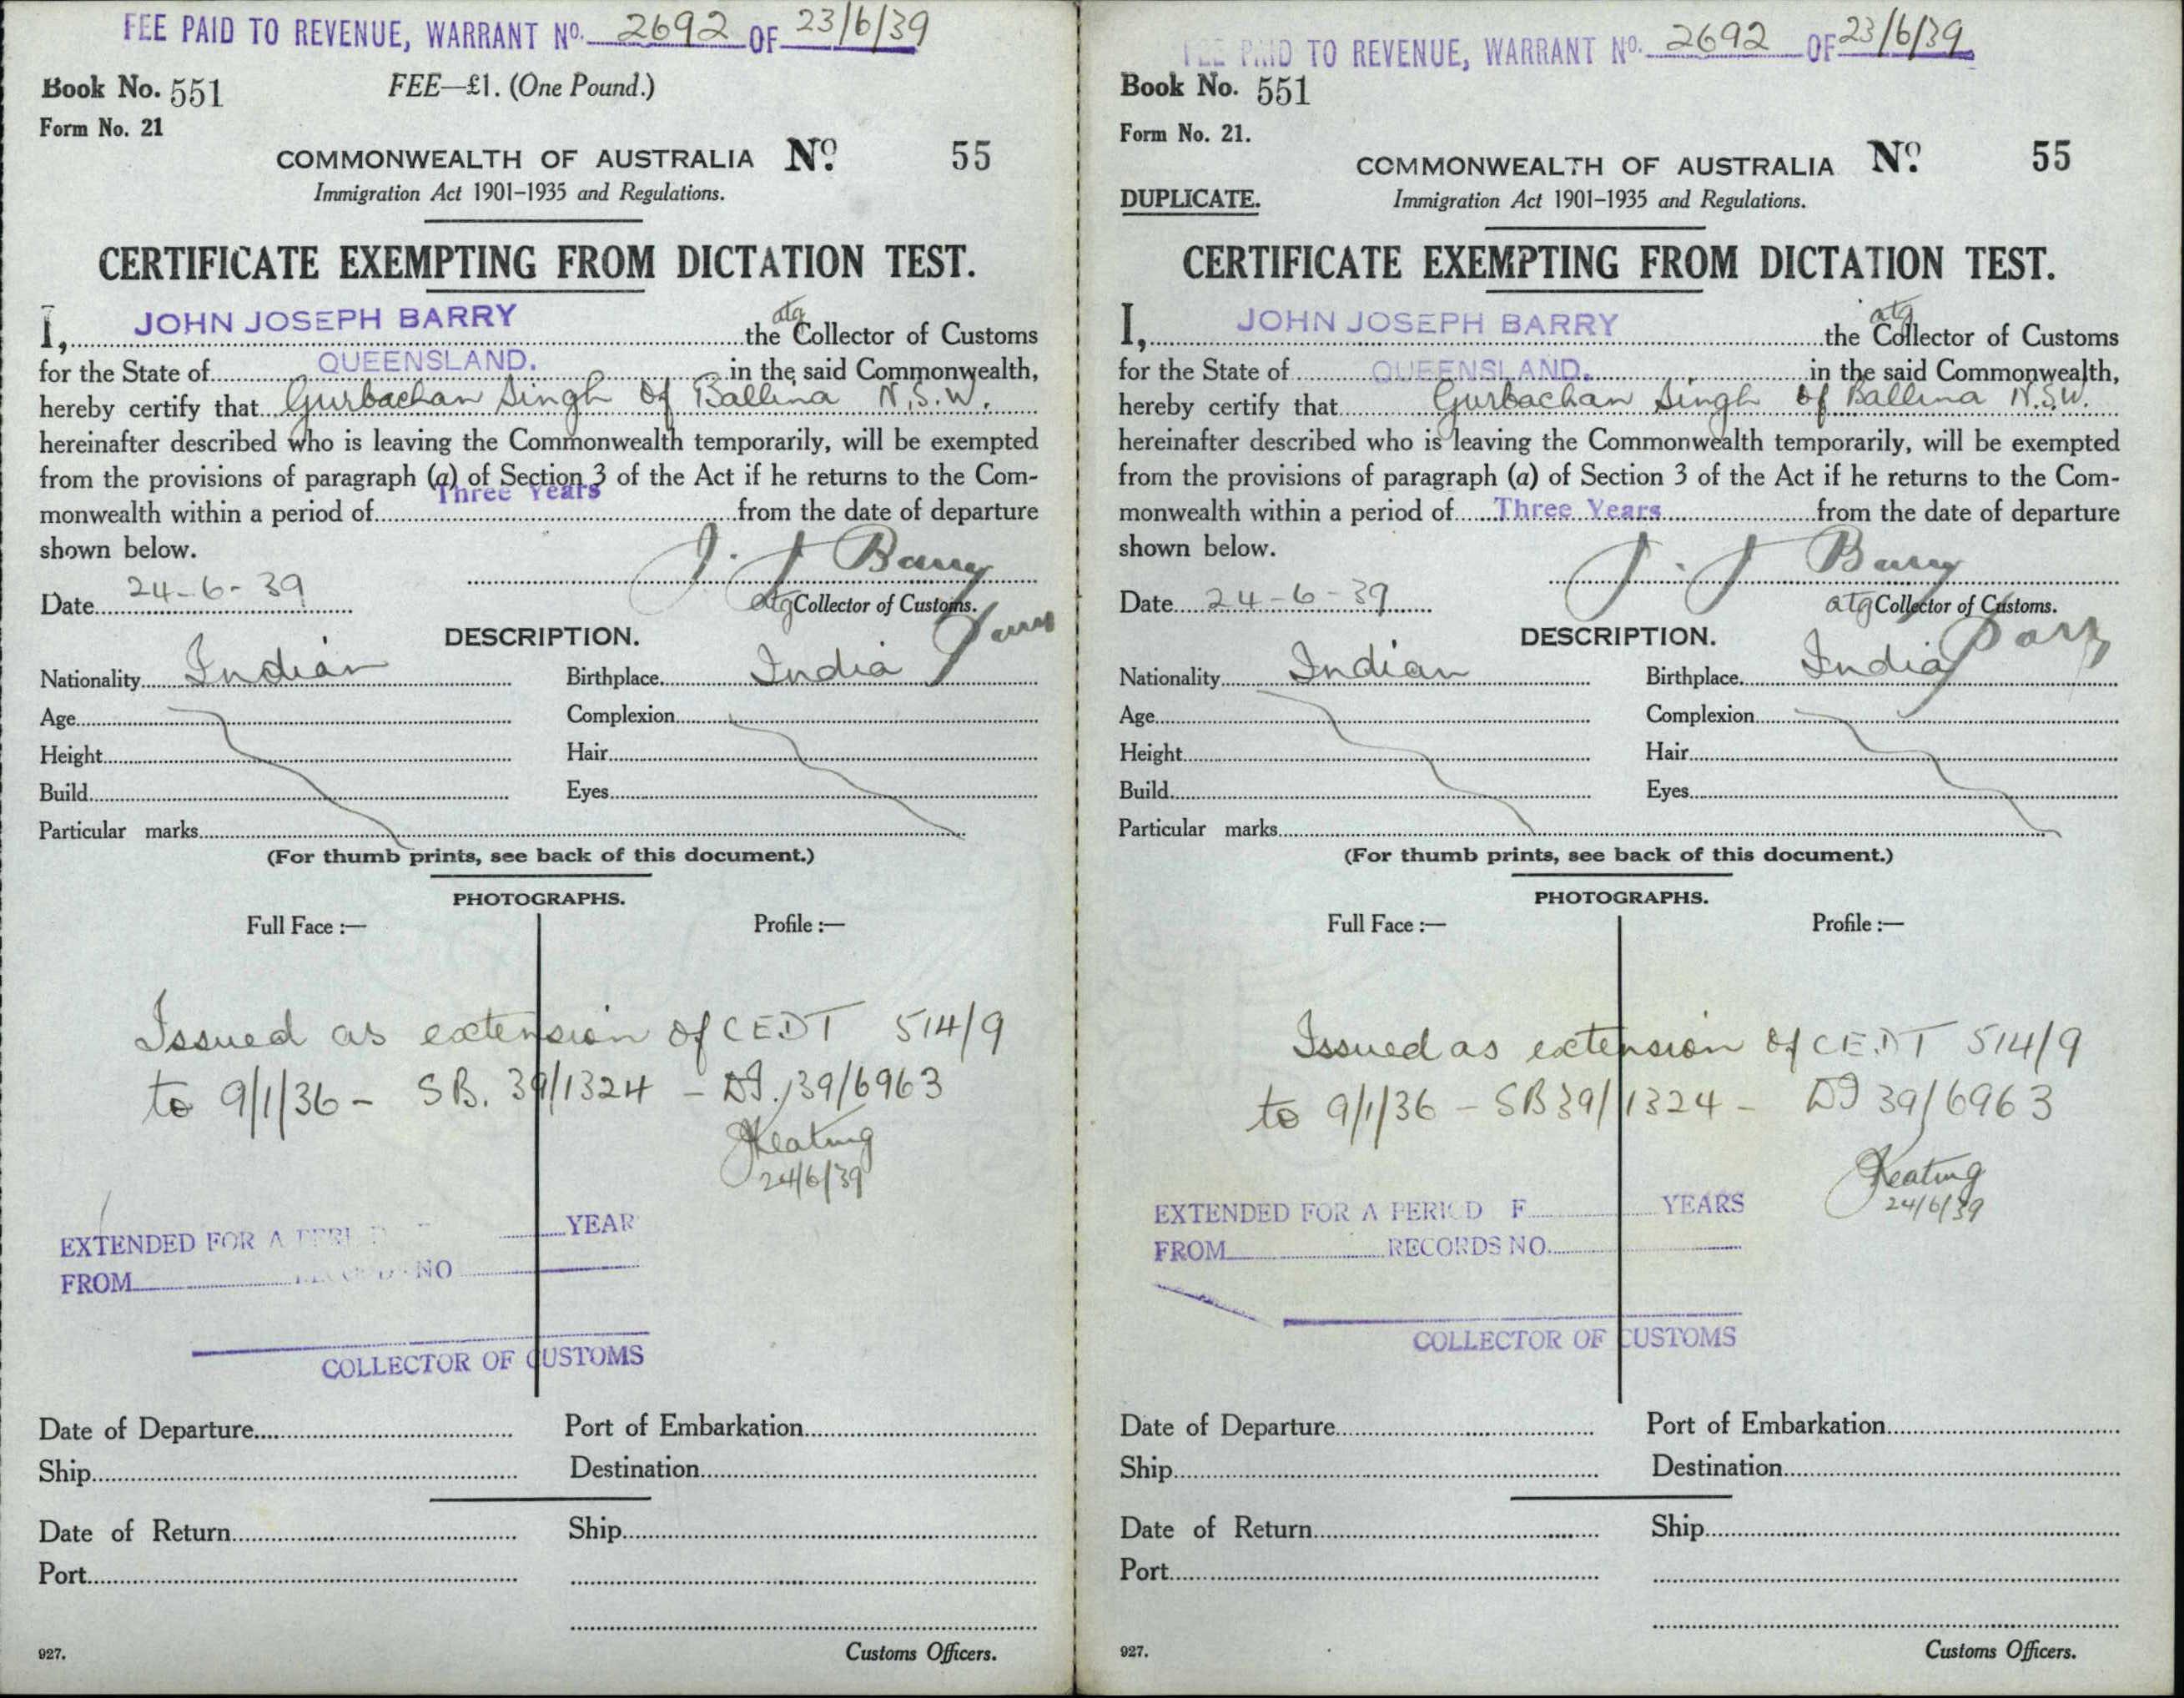 FEE PAID TO REVENUE, WARRANT No. 2692 OF 23/6/39
Book No. 551 FEE—£1. (One Pound.)
Form No. 21
COMMONWEALTH OF AUSTRALIA No. 55
Immigration Act 1901-1935 and Regulations.
CERTIFICATE EXEMPTING FROM DICTATION TEST.
I, JOHN JOSEPH BARRY the atg Collector of Customs
for the State of QUEENSLAND. in the said Commonwealth,
hereby certify that Gurbachan Singh of Ballina N.S.W.
hereinafter described who is leaving the Commonwealth temporarily, will be exempted
from the provisions of paragraph (a) of Section 3 of the Act if he returns to the Com-
monwealth within a period of Three Years from the date of departure
shown below.
J. J Barry
Date 24-6-39 atg Collector of Customs.
DESCRIPTION.
Nationality Indian Birthplace India
Age Complexion
Height Hair
Build Eyes
Particular marks
(For thumb prints, see back of this document.)
PHOTOGRAPHS.
Full Face :— Profile :—
Issued as extension of CEDT 514/9
to 9/1/36 - SB. 39/1324 - DI. 39/6963
Keating
24/6/39
EXTENDED FOR A PERI D YEAR
FROM NO
COLLECTOR OF CUSTOMS
Date of Departure Port of Embarkation
Ship Destination
Date of Return Ship
Port
927. Customs Officers.
FEE PAID TO REVENUE, WARRANT No. 2692 OF 23/6/39
Book No. 551
Form No. 21.
COMMONWEALTH OF AUSTRALIA No. 55
DUPLICATE. Immigration Act 1901-1935 and Regulations.
CERTIFICATE EXEMPTING FROM DICTATION TEST.
I, JOHN JOSEPH BARRY the atg Collector of Customs
for the State of QUEENSLAND. in the said Commonwealth,
hereby certify that Gurbachan Singh of Ballina N.S.W.
hereinafter described who is leaving the Commonwealth temporarily, will be exempted
from the provisions of paragraph (a) of Section 3 of the Act if he returns to the Com-
monwealth within a period of Three Years from the date of departure
shown below.
J. J Barry
Date 24-6-39 atg Collector of Customs.
DESCRIPTION.
Nationality Indian Birthplace India
Age Complexion
Height Hair
Build Eyes
Particular marks
(For thumb prints, see back of this document.)
PHOTOGRAPHS.
Full Face :— Profile :—
Issued as extension of CEDT 514/9
to 9/1/36 - SB 39/1324 - DI 39/6963
Keating
24/6/39
EXTENDED FOR A PERIOD F YEARS
FROM RECORDS NO.
COLLECTOR OF CUSTOMS
Date of Departure Port of Embarkation
Ship Destination
Date of Return Ship
Port
927. Customs Officers.